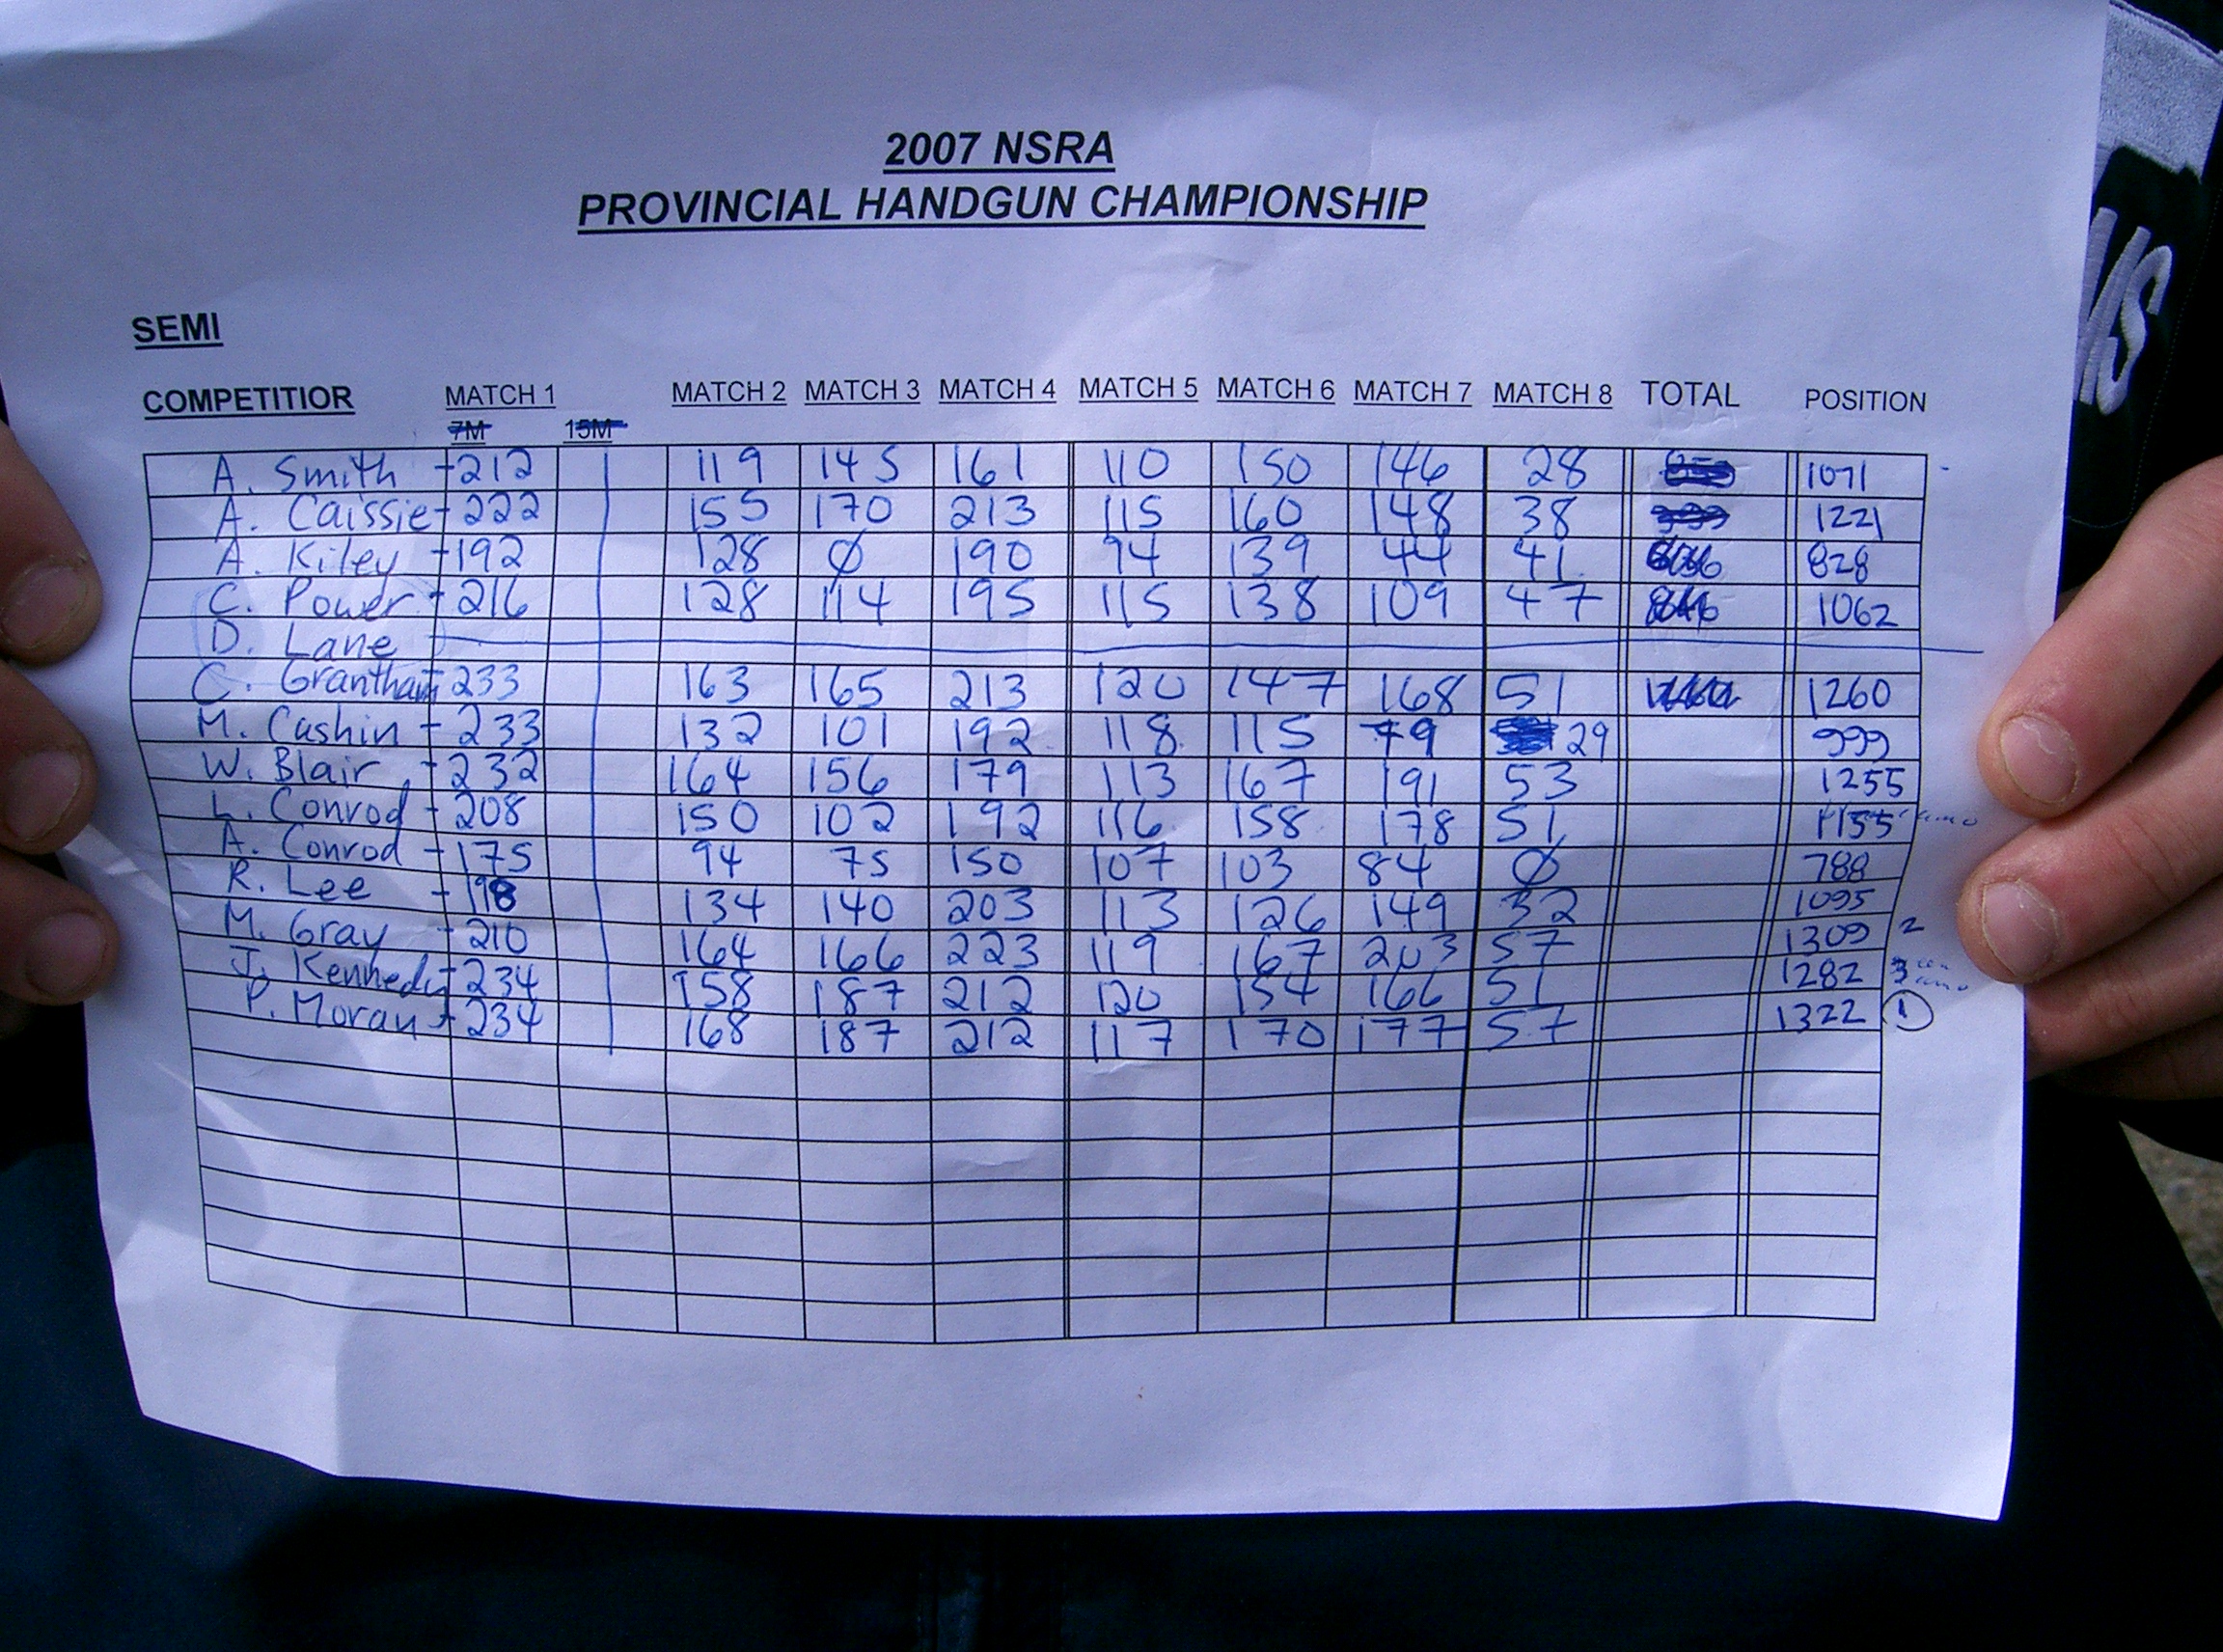 2007 NSRA
PROVINCIAL HANDGUN CHAMPIONSHIP
SEMI
COMPETITIOR MATCH 1 MATCH 2 MATCH 3 MATCH 4 MATCH 5 MATCH 6 MATCH 7 MATCH 8 TOTAL POSITION
7M 15M
A. Smith - 212 119 145 161 110 150 146 28 1071
A. Caissie - 222 155 170 213 115 160 148 38 1221
A. Kiley - 192 128 Ø 190 94 139 44 41 828
C. Power - 216 128 114 195 115 138 109 47 1062
D. Lane
C. Grantham - 233 163 165 213 120 147 168 51 1260
M. Cashin - 233 132 101 192 118 115 79 29 999
W. Blair - 232 164 156 179 113 167 191 53 1255
L. Conrod - 208 150 102 192 116 158 178 51 1155
A. Conrod - 175 94 75 150 107 103 84 Ø 788
R. Lee - 198 134 140 203 113 126 149 32 1095
M. Gray - 210 164 166 223 119 167 203 57 1309 2
J. Kennedy - 234 158 187 212 120 154 166 51 1282 3
P. Moran - 234 168 187 212 117 170 177 57 1322 1
NS